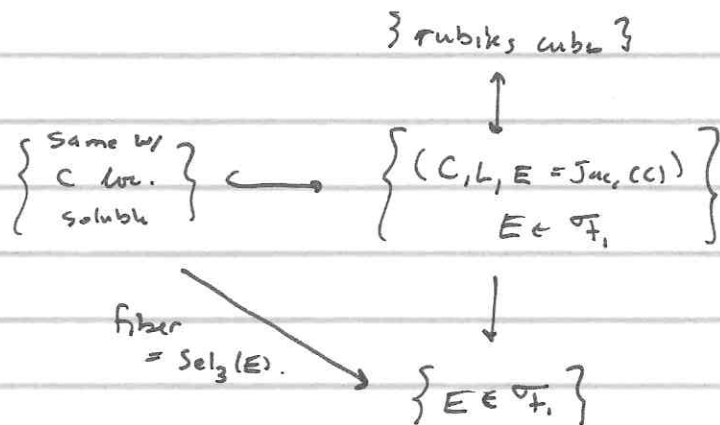 } rubiks cube }
{ Same w/
C loc.
soluble }
{ (C, L, E = Jac(C))
E ∈ 𝓕₁ }
fiber
= Sel₃(E).
{ E ∈ 𝓕₁ }